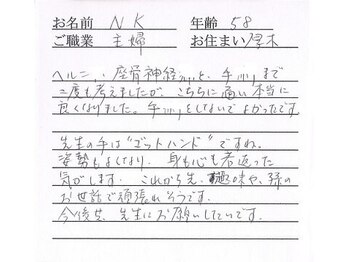 お名前 N K 年齢 58
ご職業 主婦 お住まい 厚木
ヘルニ 座骨神経 と、手 まで
二度も考えましたが、こちらに 本当に
良くなりました。手 をしないでよかったです
先生の手は"ゴットハンド"ですね。
姿勢もよくなり、身も心も若返った
気がします。これから先、趣味や、孫の
お世話で頑張れそうです。
今後共、先生にお願いしたいです。